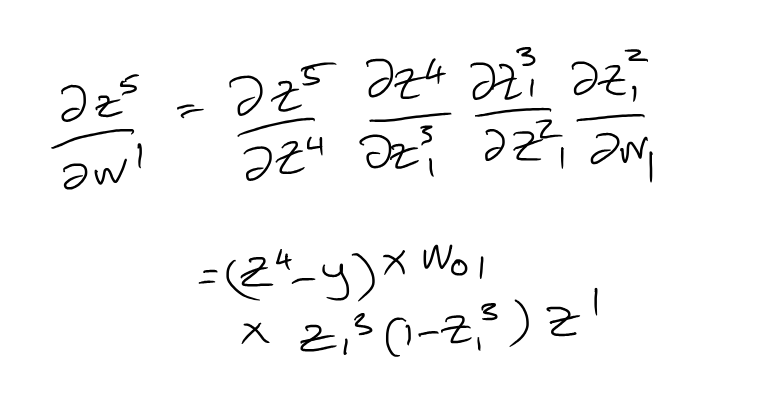 ∂z⁵/∂w¹ = ∂z⁵/∂z⁴ ∂z⁴/∂z₁³ ∂z₁³/∂z₁² ∂z₁²/∂w₁
= (z⁴ - y) × w₀₁
× z₁³ (1 - z₁³) z¹